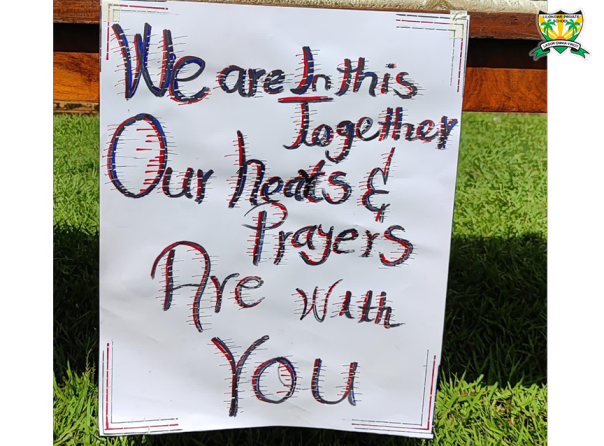 We are In this
Together
Our heats &
Prayers
Are With
You